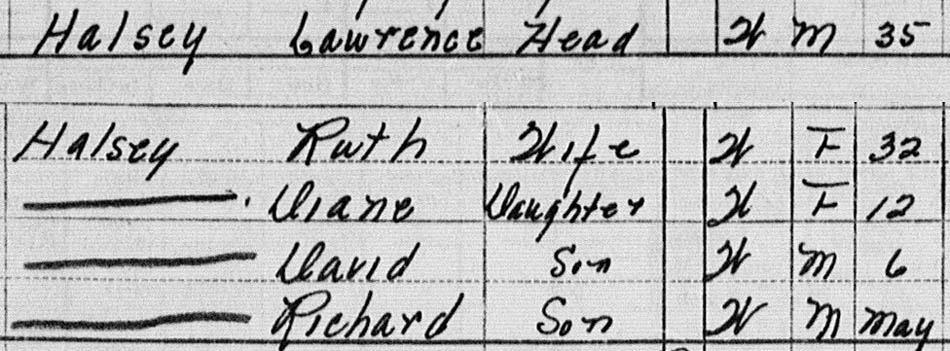 Halsey Lawrence Head W M 35
Halsey Ruth Wife W F 32
Diane Daughter W F 12
David Son W M 6
Richard Son W M May